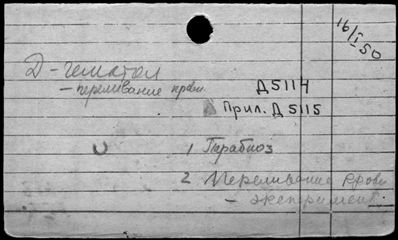 16/I 50
Д-гематол
Д5114
– переливание крови
Прил. Д5115
1 Парабиоз
2 Переливание крови
– эксперимент.